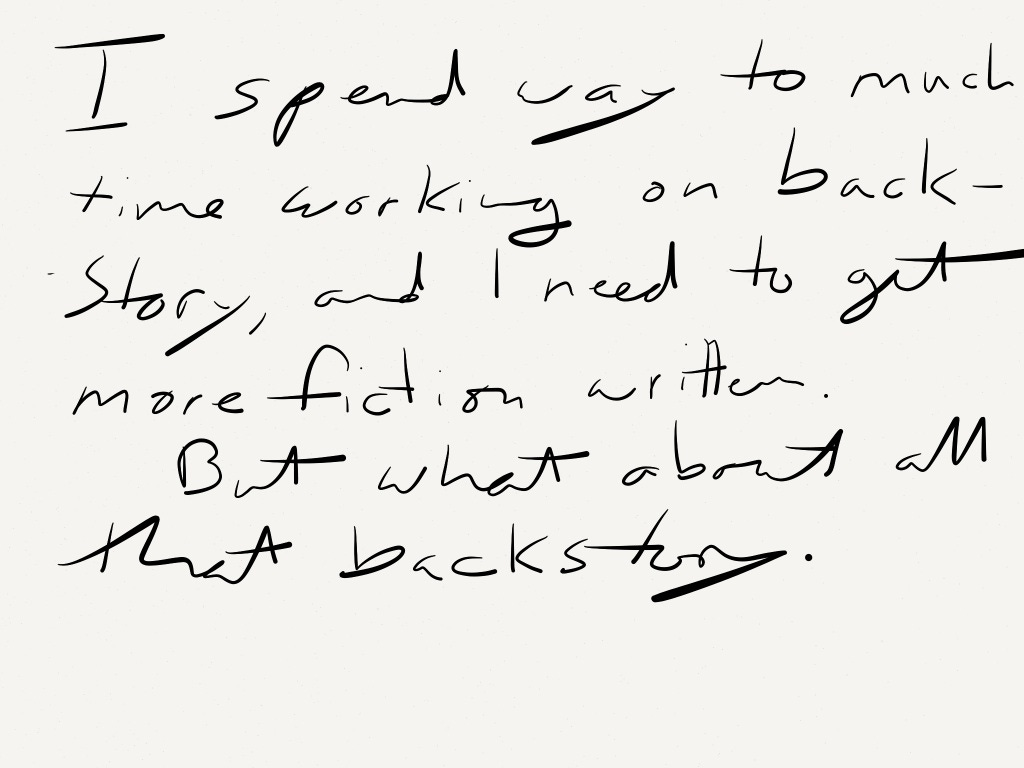 I spend way to much
time working on back-
Story, and I need to get
more fiction written.
But what about all
that backstory.